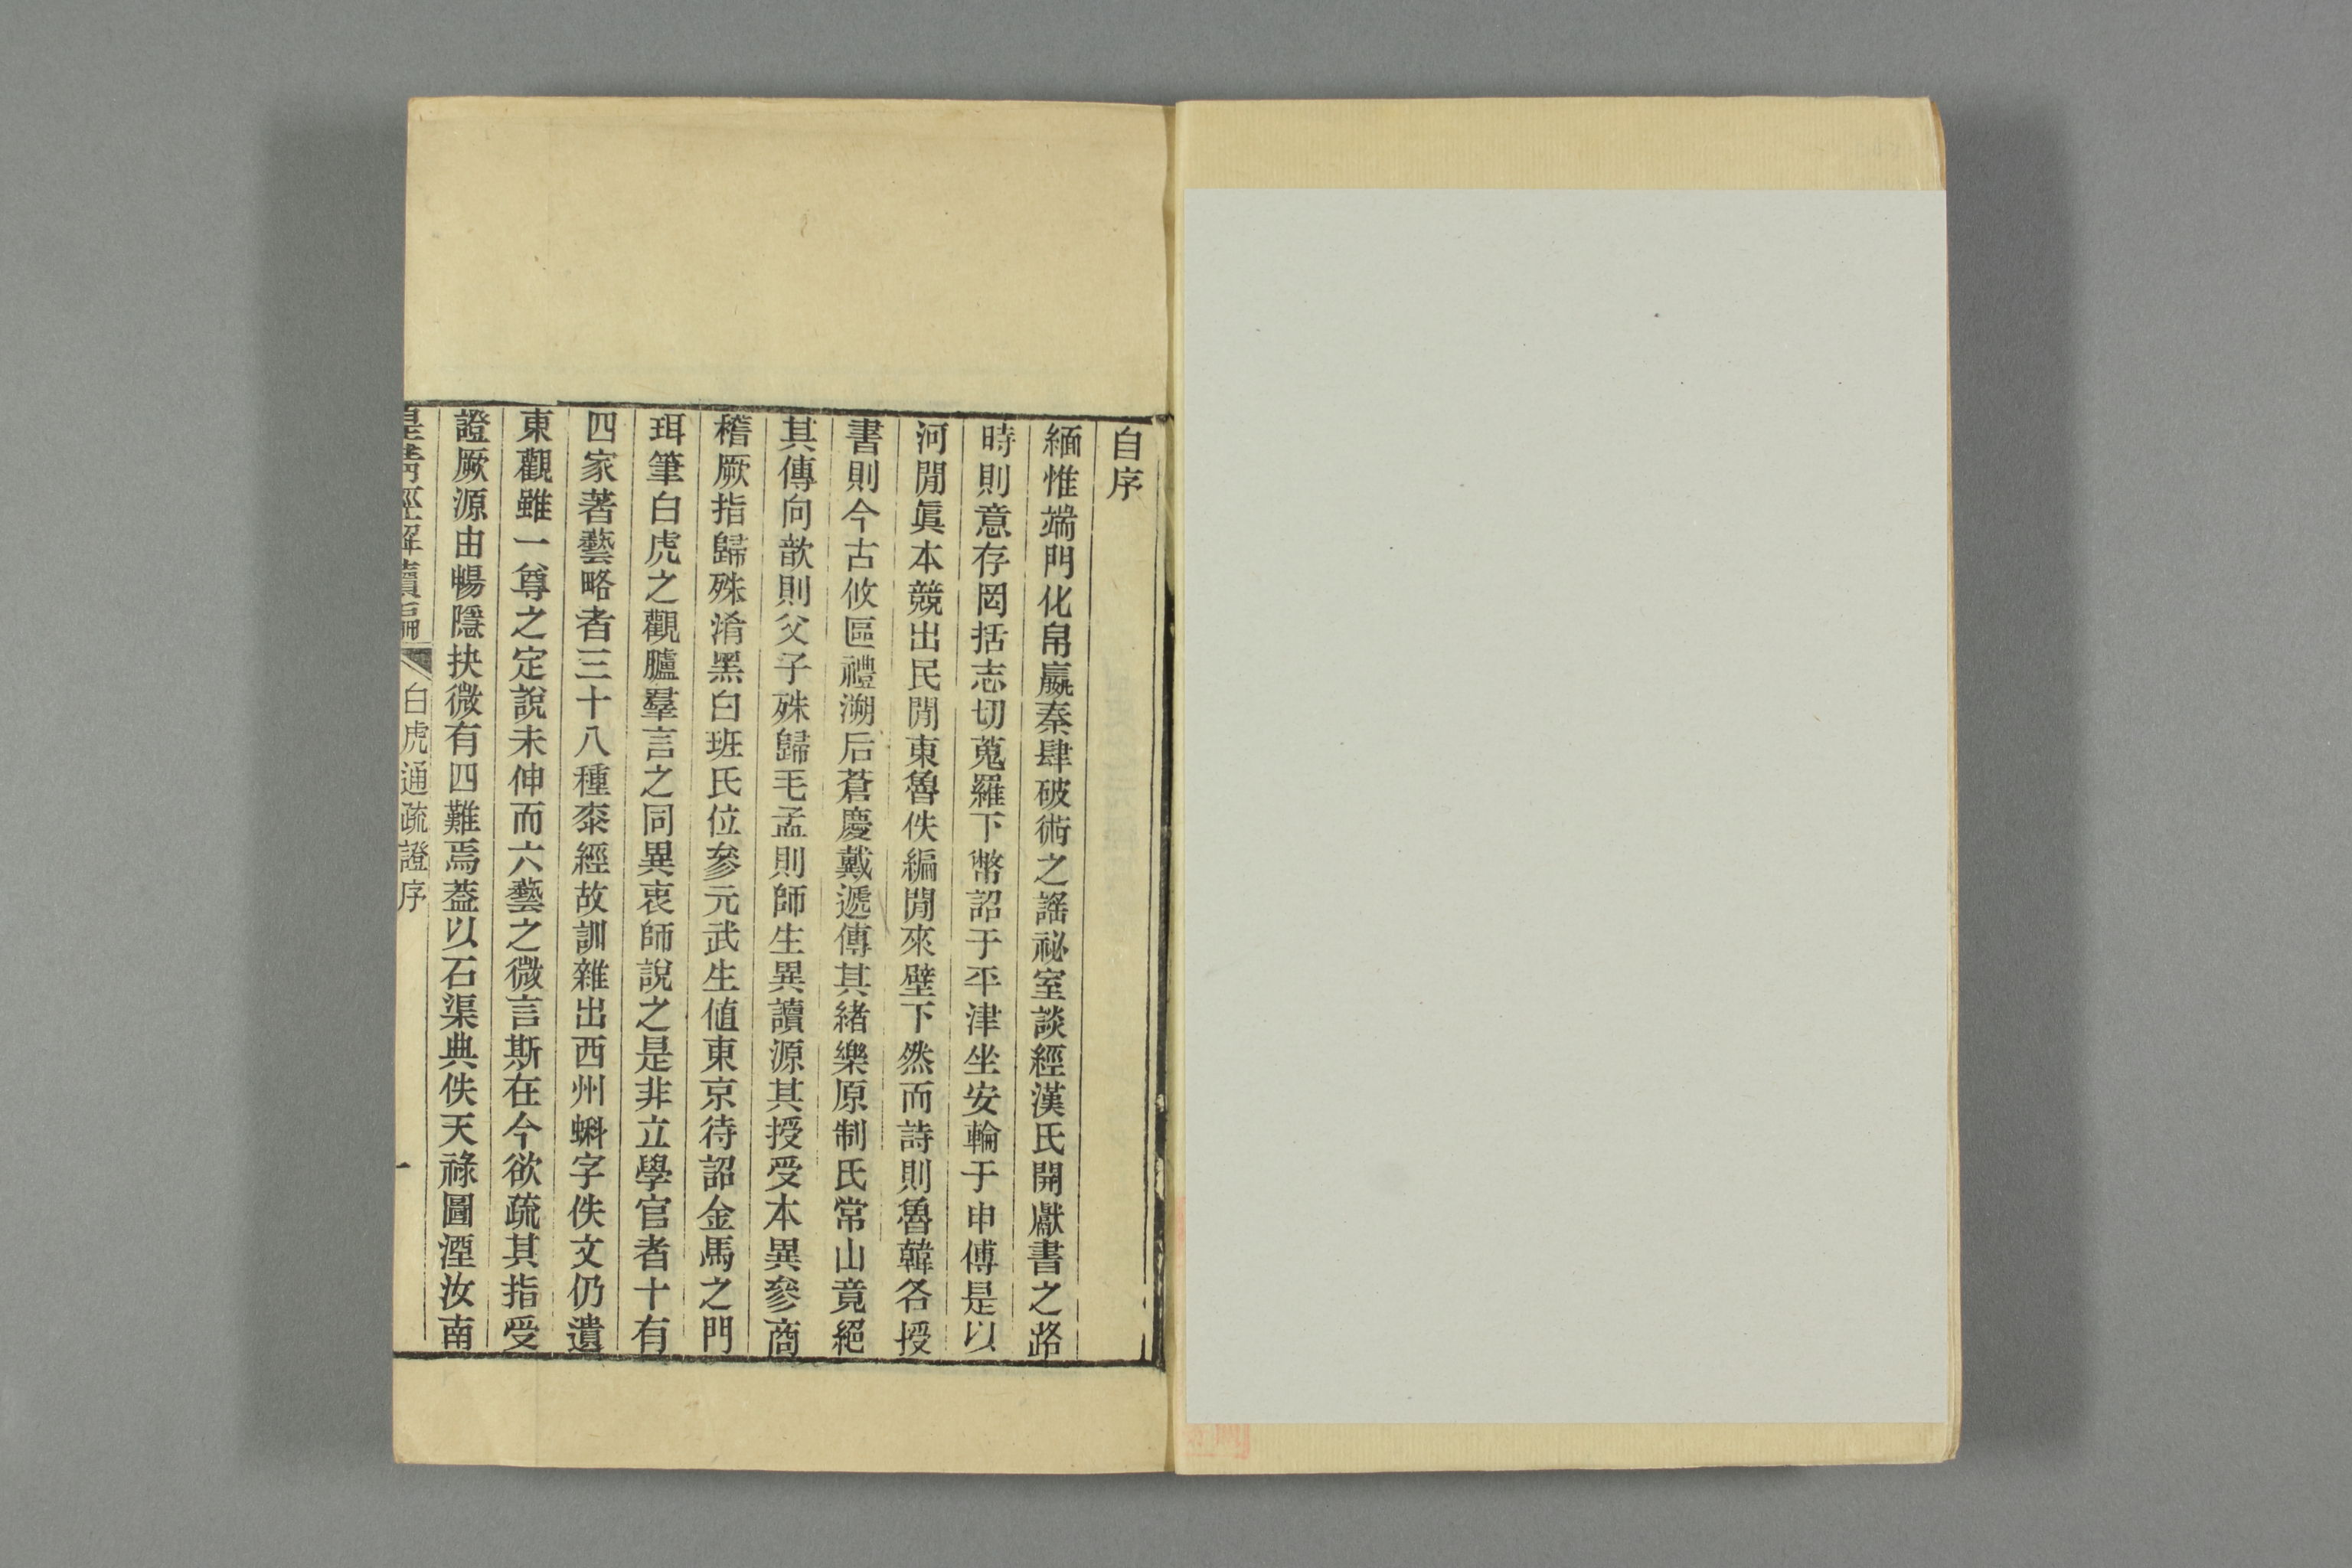 自序
緬惟端門化帛嬴秦肆破術之謠祕室談經漢氏開獻書之路
時則意存罔括志切蒐羅下幣詔于平津坐安輪于申傅是以
河閒眞本競出民閒東魯佚編閒來壁下然而詩則魯韓各授
書則今古攸區禮溯后蒼慶戴遞傳其緒樂原制氏常山竟絕
其傳向歆則父子殊歸毛孟則師生異讀源其授受本異參商
稽厥指歸殊淆黑白班氏位參元武生値東京待詔金馬之門
珥筆白虎之觀臚羣言之同異衷師說之是非立學官者十有
四家著藝略者三十八種桼經故訓雜出西州蝌字佚文仍遺
東觀雖一尊之定說未伸而六藝之微言斯在今欲疏其指受
證厥源由暢隱抉微有四難焉葢以石渠典佚天祿圖湮汝南
皇淸經解續編 白虎通疏證序 一